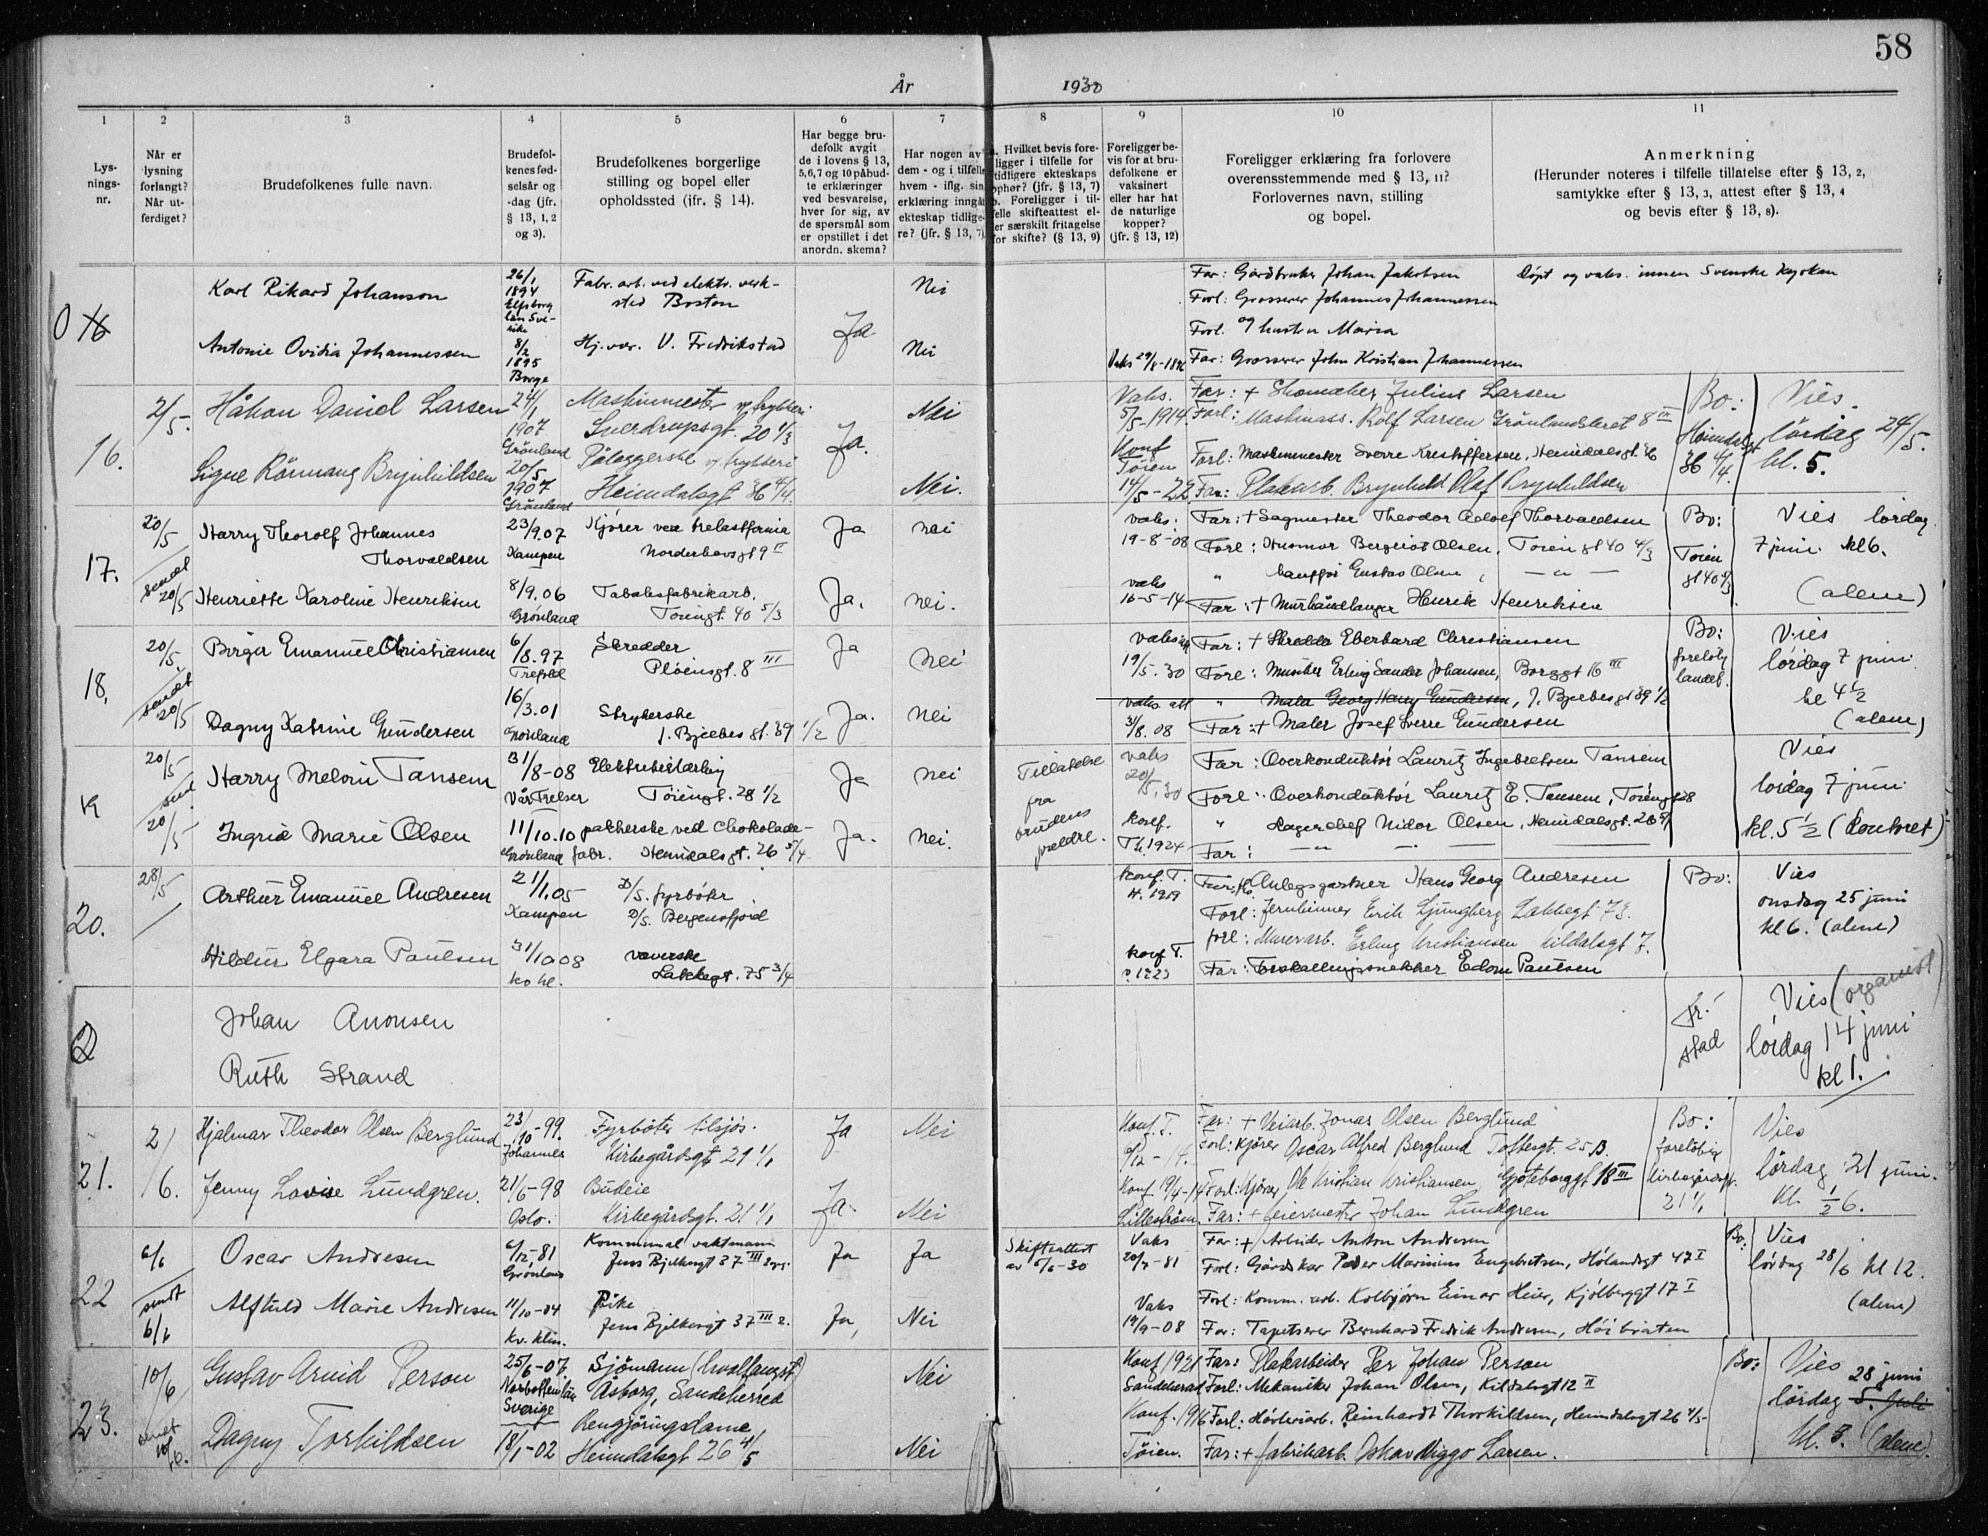 58
År 1930
1 2 3 4 5 6 7 8 9 10 11
Lysnings-nr.
Når er lysning forlangt? Når utferdiget?
Brudefolkenes fulle navn.
Brudefolkenes fødselsår og -dag (jfr. § 13, 1, 2 og 3).
Brudefolkenes borgerlige stilling og bopel eller opholdssted (ifr. § 14).
Har begge brudefolk avgit de i lovens § 13, 5, 6, 7 og 10 påbudte erklæringer ved besvarelse, hver for sig, av de spørsmål som er opstillet i det anordn. skema?
Har nogen av dem - og i tilfelle hvem - iflg. sin erklæring inngått ekteskap tidligere? (jfr. § 13, 7)
Hvilket bevis foreligger i tilfelle for tidligere ekteskaps ophør? (jfr. § 13, 7)
b. Foreligger i tilfelle skifteattest eller særskilt fritagelse for skifte? (§ 13, 9)
Foreligger bevis for at brudefolkene er vaksinert eller har hat de naturlige kopper? (jfr. § 13, 12)
Foreligger erklæring fra forlovere overensstemmende med § 13, 11? Forlovernes navn, stilling og bopel.
Anmerkning
(Herunder noteres i tilfelle tillatelse efter § 13, 2, samtykke efter § 13, 3, attest efter § 13, 4 og bevis efter § 13, 8).
Karl Rikard Johanson
26/1 1894 Elfsborg län Sverike
Fabr. arb. ved elektr. verksted Boston
Nei
Far: Gårdbruker Johan Jakobsen
Forl: Grosserer Johannes Johannessen
Døpt og vaks. innen Svenske kyrkan
Forl. og hustru Maria
Antonie Ovidia Johannessen
8/2 1895 Borge
Hj. vær. V. Fredrikstad
Ja
Nei
Far: Grosserer John Kristian Johannessen
16.
2/5-
Håkon Daniel Larsen
24/1 1907 Grønland
Maskinmester v/ trykkeri
Sverdrupsgt. 20 1/3
Ja.
Nei
Vaks. 5/5-1914
Far: + Skomaker Julius Larsen
Forl: Maskinass. Rolf Larsen Grønlandsleret 8 III
Bo: Heimdalsgt 36 4/4.
Vies. lördag 24/5. kl. 5.
Signe Rönnaug Brynhildsen
20/5 1907 Grønland
Pålæggerske v/ trykkeri
Heimdalsgt 36 4/4.
Nei.
Konf Tøien 14/5-22
Forl: Maskinmester Sverre Kristoffersen, Heimdalsgt. 36
Far: Plakarb. Brynhild Olaf Brynhildsen
17.
20/5 sendt 20/5
Harry Thorolf Johannes Thorvaldsen
23/9.07 Kampen
Kjører ved
Norderhovsgt 9 II
Ja
nei
vaks. 19-8-08
Far: + Sagmester Theodor Adolf Thorvaldsen
Forl: Husmor Bergliot Olsen, Tøien gt 40 4/3
Bo: Tøien gt 40 4/3
Vies lørdag 7 juni kl 6. (alene)
" Chauffør Gustav Olsen, — " —
Henriette Karoline Henriksen
8/9.06 Grønland
Tobaksfabrikarb. Tøiengt. 40 5/3
Ja.
nei.
vaks 16-5-14
Far: + Murhåndlanger Henrik Henriksen
18.
20/5. sendt 20/5
Birger Emanuel Christiansen
6/8.97 Trefold
Skredder
Pløensgt. 8 III
Ja
nei
19/5.30
Far: + Skredder Eberhard Christiansen
Forl: Musiker Erling Sander Johansen, Borggt 16 III
Bo:
Vies lørdag 7 juni kl 4 1/2 (alene)
" Maler Georg Harry Gundersen, J. Bjelkes gt 39 1/2
Dagny Katrine Gundersen
16/3.01 Grønland
Strykerske
J. Bjelkes gt. 39 1/2
Ja.
nei
vaks att 31/8.08
Far: + Maler Josef Sverre Gundersen
19
20/5 sendt 20/5
Harry Melvin Tansem
31/8-08 Vår Frelser
Tøiengt. 28 1/2
Ja
nei
Tillatelse fra brudens foreldre.
vaks 20/5.30
Far: Overkonduktør Lauritz Ingebretsen Tansem
Forl: Overkonduktør Lauritz E. Tansem, Tøiengt 28
Vies lørdag 7 juni kl. 5 1/2 (Kontoret)
Ingrid Marie Olsen
11/10.10 Grønland
pakkerske ved Chokoladefabr. Heimdalsgt. 26 5/4
Ja.
nei.
konf. 1924
" Lagerchef Nidor Olsen, Heimdalsgt. 26 5/
Far: — " —
20.
28/5
Arthur Emanuel Andresen
21/1.05 Kampen
D/S. fyrbøter
D/S. Bergensfjord
konf. T. 1919
Far: Anlegsgartner Hans Georg Andresen
Forl: Jernbinner Erik Ljungberg Lakkegt 73.
Bo:
Vies onsdag 25 juni kl 6. (alene)
Forl: Murerarb. Erling Kristiansen Kildalsgt 7.
Hildur Elgara Paulsen
31/10 08
væverske
Lakkegt. 75 3/4
konf T.
Far: Forskallingssnekker Edom Paulsen
Johan Anonsen
Ruth Strand
fr. stad
Vies (organist)
lørdag 14 juni
kl 1.
21.
2/6.
Hjalmar Theodor Olsen Berglund
23/10-99. Johannes
Fyrbøter tilsjös.
Kirkegårdsgt 21 1/1
Ja
Nei
Konf. T.
Far: + Veiarb. Jonas Olsen Berglund
Forl: Kjører Oscar Alfred Berglund Toftesgt. 25 B.
Bo: foreløbig Kirkegårdsgt. 21 1/1
Vies lördag 21 juni. kl. 1/2 6.
Jenny Lovise Lundgren.
21/6-98 Oslo.
Budeie
Kirkegårdsgt. 21 1/1
Ja.
Nei
Konf 19/4-14 Lillestrøm
Forl: Kjører Ole Kristian Kristiansen, Gøteborggt 18 III
Far: + Johan Lundgren
22
6/6 sendt 6/6
Oscar Andresen
6/12.81 Grønland
Kommunal vaktmann
Jens Bjelkesgt 37 III
Ja
Ja
Skifteattest av 5/6-30
Vaks 20/7-81
Far: + Arbeider Anton Andresen
Forl: Gårdskar Peder Marinius Engebretsen, Hølandsgt 47 I
Bo:
Vies lørdag 28/6 kl 12. (alene)
Alfhild Marie Andresen
11/10-04
Pike
Jens Bjelkesgt 37 III 2.
Ja,
Nei
Vaks 19/9-08
Forl: Komm. arb. Kolbjørn Einar Heier, Kjølberggt 17 I
Far: Tapetserer Bernhard Fredrik Andresen, Høibråten
23.
10/6 sendt 10/6.
Gustav Arvid Person
25/6-07 Norbottenlän Sverige
Sjömann (hvalfangst)
Åsborg, Sandeherred
Nei
Konf 1921 Sandeherad
Far: Plakarbeider Per Johan Person
Forl: Mekaniker Johan Olsen, Kildalsgt 12 II
Bo:
Vies 28 juni
lørdag 5. Juli
kl. 3. (alene).
Dagny Torkildsen
18/1-02
Rengjøringsdame
Heimdalsgt 26 4/5
Nei
Konf. 1916 Tøien.
Forl: Reinhardt Thorkildsen, Heimdalsgt 26 4/5
Far: + fabrikarb. Oskar Viggo Larsen.